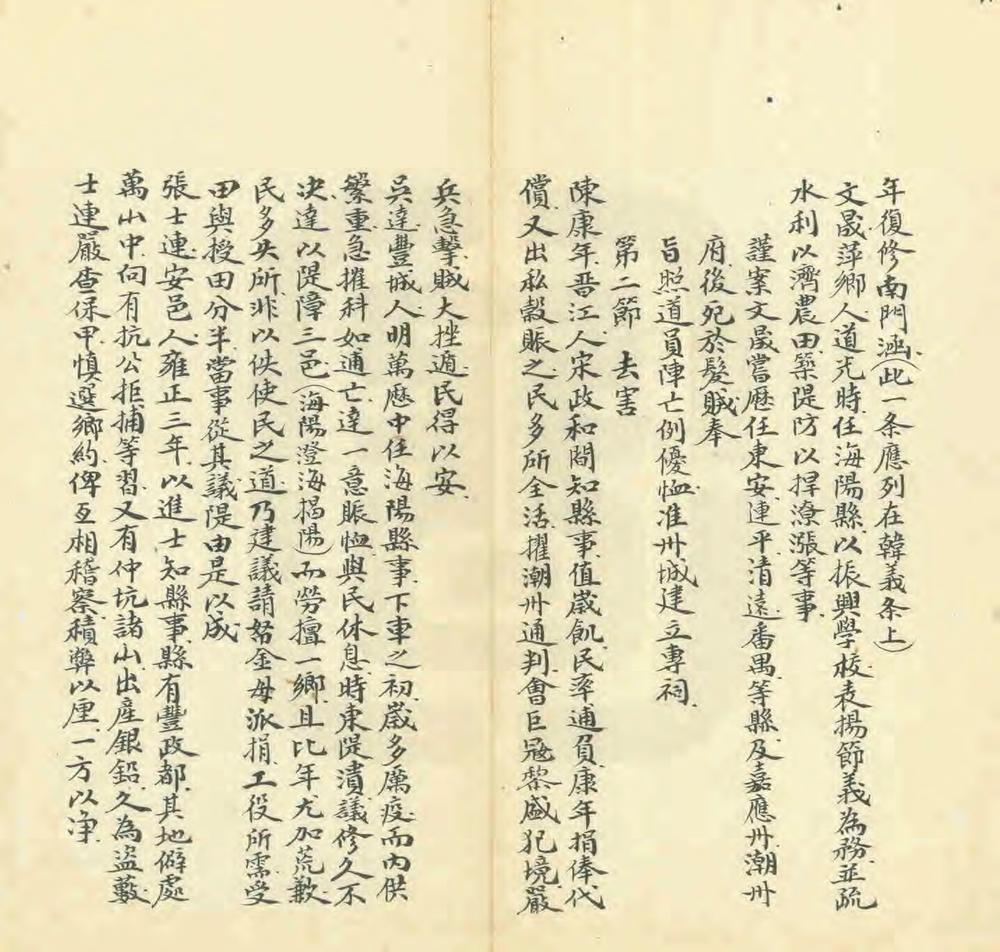 年復修南門涵(此一条應列在韓義条上)
文晟萍鄉人道光時任海陽縣以振興學校表揚節義為務並疏
水利以濟農田築隄防以捍潦漲等事
謹案文晟嘗歷任東安連平清遠番禺等縣及嘉應州潮州
府後死於髮賊奉
旨照道員陣亡例優恤准州城建立專祠
第二節 去害
陳康年晋江人宋政和間知縣事值歲飢民率逋負康年捐俸代
償又出私穀賑之民多所全活擢潮州通判會巨冦黎盛犯境嚴
兵急擊賊大挫遁民得以安
吳達豐城人明萬歷中任海陽縣事下車之初歲多厲疫而內供
繁重急摧科如逋亡達一意賑恤與民休息時東隄潰議修久不
决達以隄障三邑(海陽澄海揭陽)而勞擅一鄉且比年尤加荒歉
民多失所非以佚使民之道乃建議請帑金毋派捐工役所需受
田與授田分半當事從其議隄由是以成
張士連安邑人雍正三年以進士知縣事縣有豐政都其地僻處
萬山中向有抗公拒捕等習又有仲坑諸山出産銀鉛久為盜藪
士連嚴查保甲慎選鄉約俾互相稽察積弊以厘一方以净